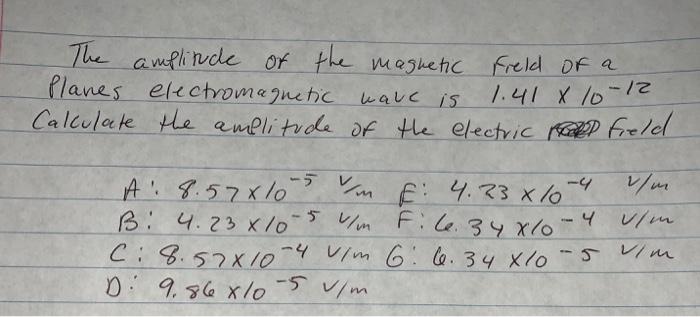 The amplitude of the magnetic field of a
Planes electromagnetic wave is 1.41 x 10^-12
Calculate the amplitude of the electric field
A: 8.57x10^-5 V/m E: 4.23 x10^-4 V/m
B: 4.23 x10^-5 V/m F: 6.34 x10^-4 V/m
C: 8.57x10^-4 V/m G: 6.34 x10^-5 V/m
D: 9.86 x10^-5 V/m